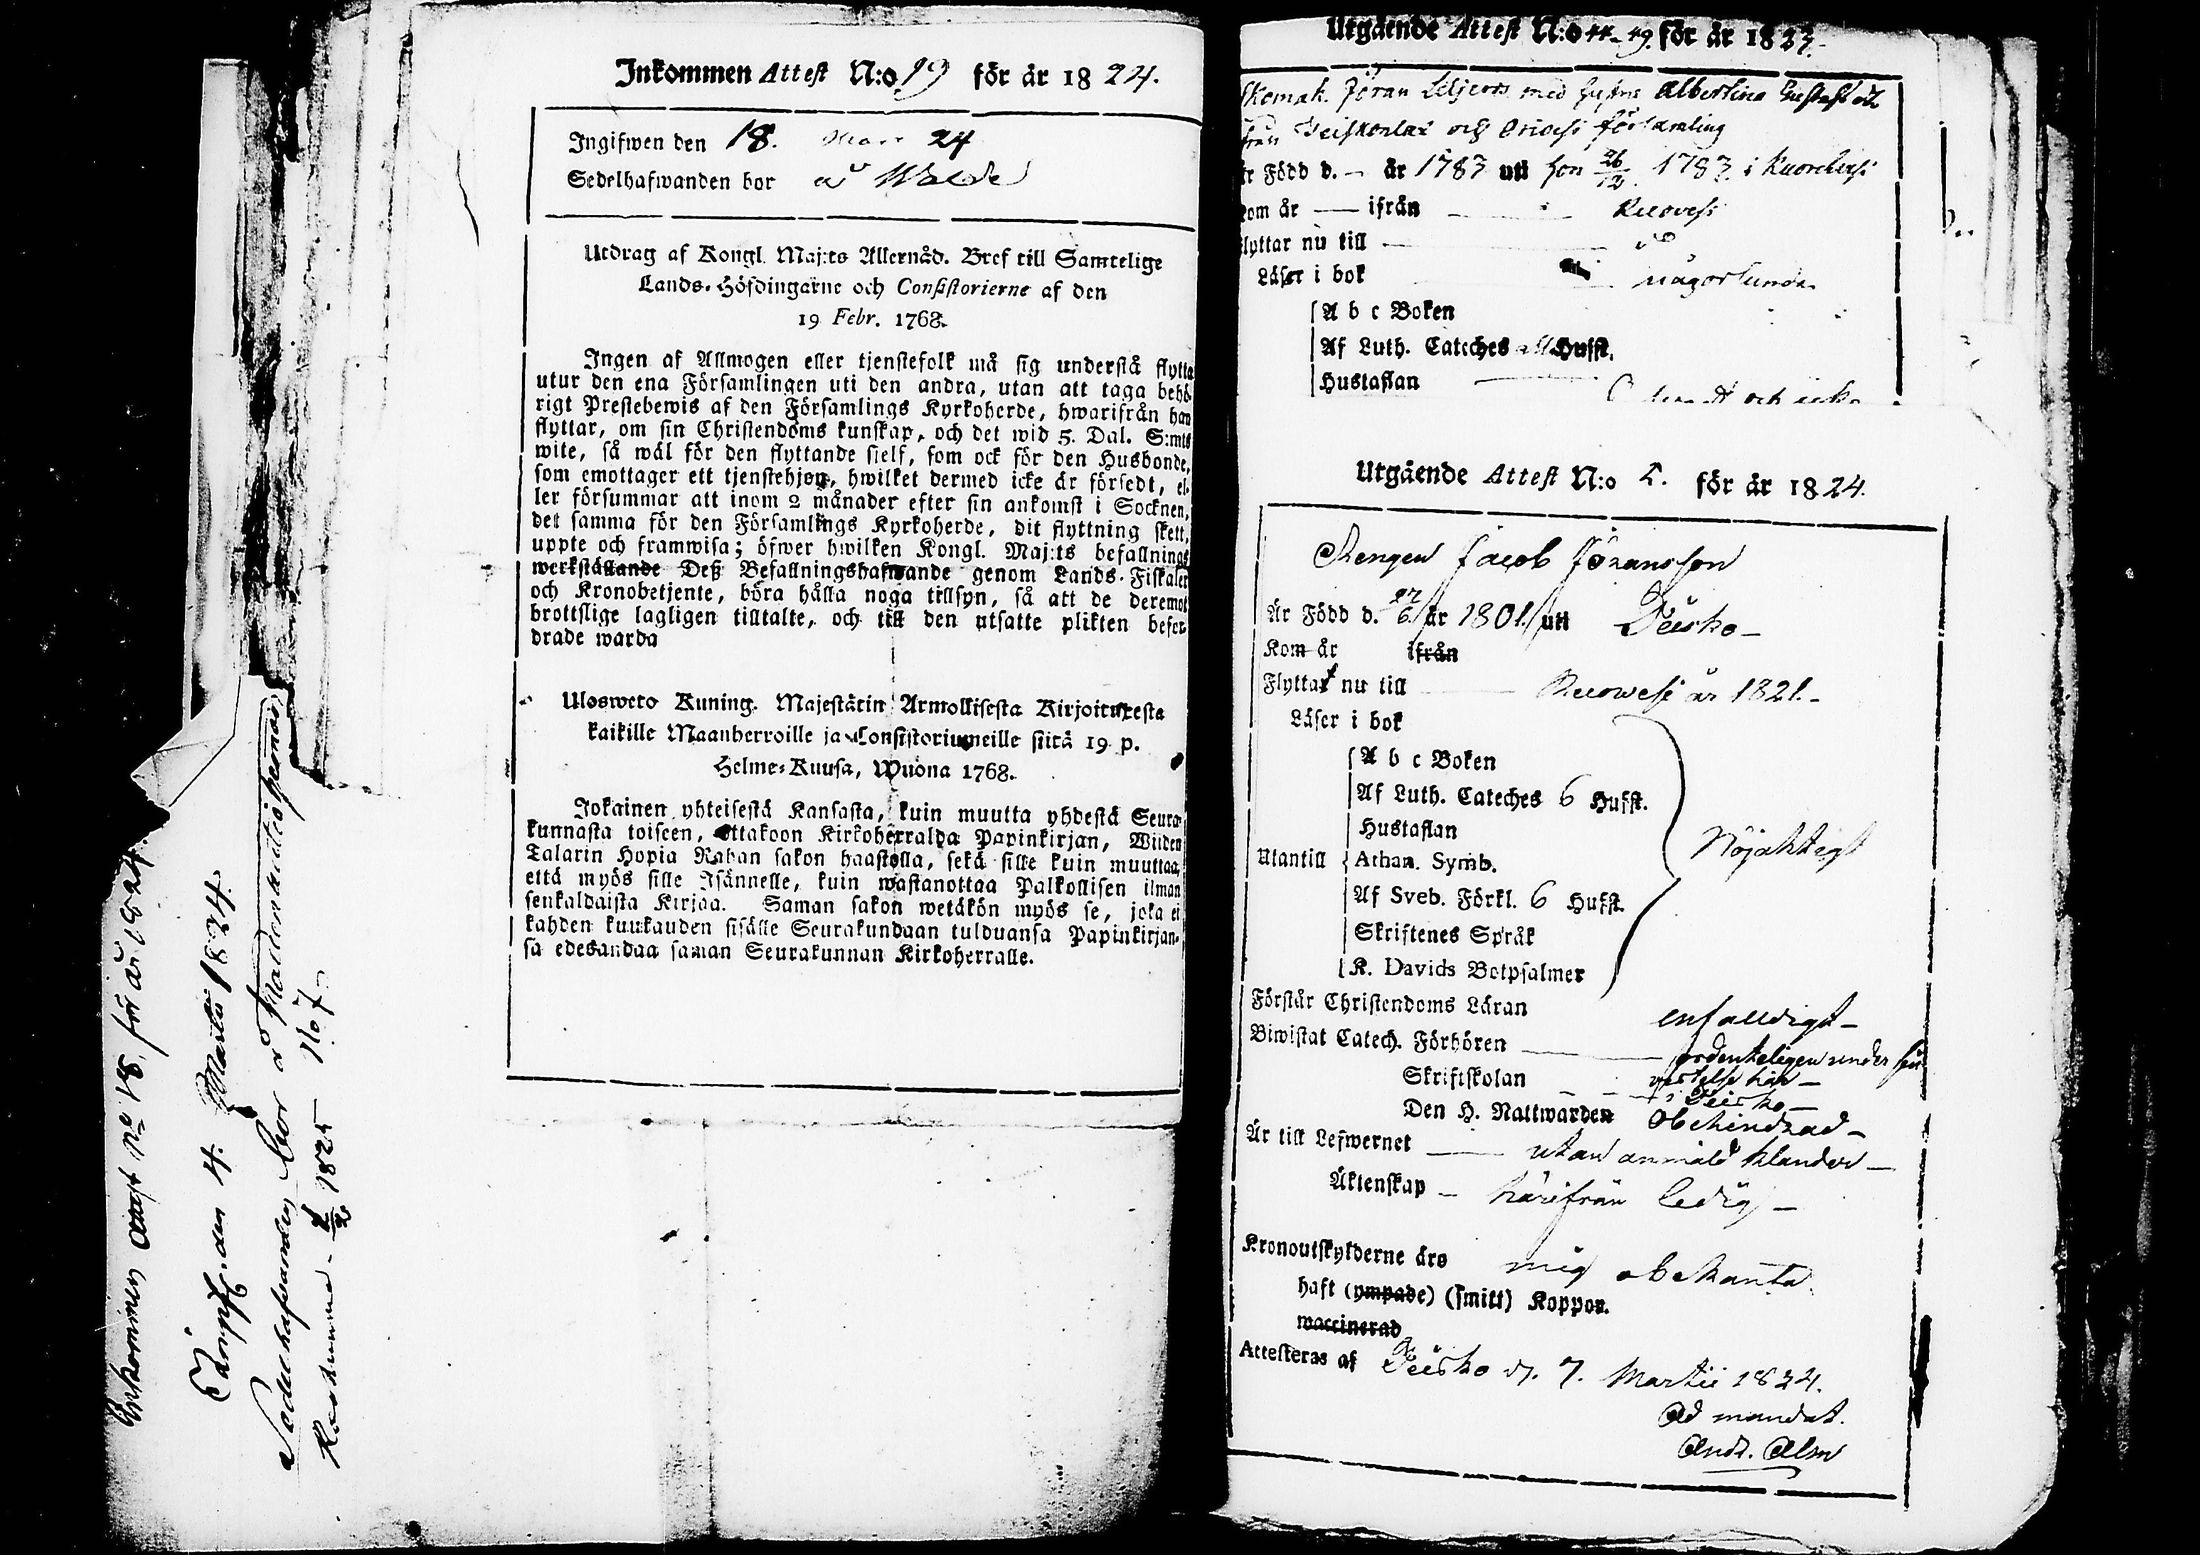 Inkommen Attest No 18. för år 1824.
Kämpf. den 4. Martii 1824.
Sedelhafvanden bor å
1825 No 7
Inkommen Attest N:o 19 för år 1824.
Ingifwen den 18. Mars 24
Sedelhafwanden bor å Walde
Utdrag af Kongl. Maj:ts Allernåd. Bref till Samtelige
Lands-Höfdingarne och Consistorierne af den
19 Febr. 1768.
Ingen af Allmogen eller tjenstefolk må sig understå flytta
utur den ena Församlingen uti den andra, utan att taga behö-
rigt Prestebewis af den Församlings Kyrkoherde, hwarifrån han
flyttar, om sin Christendoms kunskap, och det wid 5. Dal. S:mts
wite, så wäl för den flyttande sielf, som ock för den Husbonde,
som emottager ett tjenstehjon, hwilket dermed icke är försedt, el-
ler försummar att inom 2 månader efter sin ankomst i Socknen,
det samma för den Församlings Kyrkoherde, dit flyttning skett,
uppte och framwisa; öfwer hwilken Kongl. Maj:ts befallnings
werkställande Deß Befallningshafwande genom Lands-Fiskaler
och Kronobetjente, böra hålla noga tillsyn, så att de deremot
brottslige lagligen tilltalte, och till den utsatte plikten befor-
drade warda
Ulosweto Kuning. Majestätin Armollisesta Kirjoituxesta
kaikille Maanherroille ja Consistoriumeille siitä 19 p.
Helme-Kuusa, Wuona 1768.
Jokainen yhteisestä Kansasta, kuin muutta yhdestä Seura-
kunnasta toiseen, ottakoon Kirkoherralda Papinkirjan, Wiiden
Talarin Hopia Rahan sakon haastolla, sekä sille kuin muuttaa,
että myös sille Isännelle, kuin wastanottaa Palkollisen ilman
senkaldaista Kirjaa. Saman sakon wetäkön myös se, joka ei
kahden kuukauden sisälle Seurakundaan tulduansa Papinkirjan-
sa edesandaa saman Seurakunnan Kirkoherralle.
Utgående Attest N:o 19. för år 1823.
Skomak. Jöran Liljeros med hustru Albertina
från och församling
är Född d. – år 1783 uti hon 26/12. 1783. i
Kom år — ifrån Ruovesi
Flyttar nu till
Läser i bok någorlunda
A b c Boken
Af Luth. Cateches all Hufst.
Hustaflan
Utgående Attest N:o 2. för år 1824.
Drengen Jacob Jöransson
Är Född d. 27/6. år 1801. uti Teisko –
Kom år ifrån
Flyttat nu till Ruowesi år 1821. –
Läser i bok
A b c Boken
Af Luth. Cateches 6 Hufst.
Hustaflan
Utantill Athan. Symb. Nöjaktigt
Af Sveb. Förkl. 6 Hufst.
Skriftenes Språk
K. Davids Botpsalmer
Förstår Christendoms Läran enfalldigt –
Biwistat Catech. Förhören — ordenteligen under sin
Skriftskolan vistelse här –
i Teisko –
Den H. Nattwarden obehindrad –
Är till Lefwernet — utan anmäld klander –
Äktenskap – härifrån ledig –
Kronoutskylderne äro mig obekanta.
haft (ympade) (smitt) Koppor.
waccinerad
Attesteras af Teisko d. 7. Martii 1824.
Ad mandat.
And. Alm